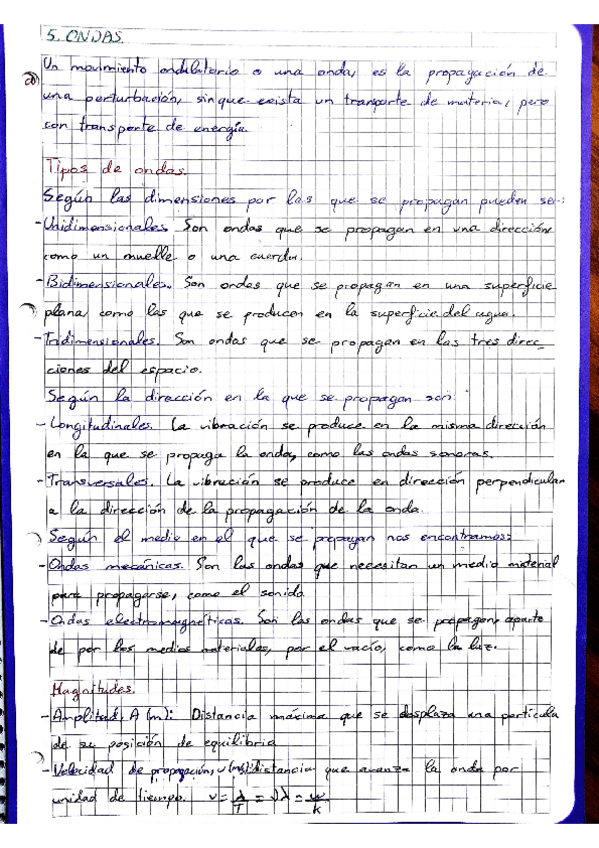 5. ONDAS.
Un movimiento ondulatorio o una onda, es la propagación de
una perturbación, sin que exista un transporte de materia, pero
con transporte de energía.
Tipos de ondas.
Según las dimensiones por las que se propagan pueden ser:
- Unidimensionales. Son ondas que se propagan en una dirección
como un muelle o una cuerda.
- Bidimensionales. Son ondas que se propagan en una superficie
plana, como las que se producen en la superficie del agua.
- Tridimensionales. Son ondas que se propagan en las tres direc_
ciones del espacio.
Según la dirección en la que se propagan son:
- Longitudinales. La vibración se produce en la misma dirección
en la que se propaga la onda, como las ondas sonoras.
- Transversales. La vibración se produce en dirección perpendicular
a la dirección de la propagación de la onda.
Según el medio en el que se propagan nos encontramos:
- Ondas mecánicas. Son las ondas que necesitan un medio material
para propagarse, como el sonido.
- Ondas electromagnéticas. Son las ondas que se propagan, aparte
de por los medios materiales, por el vacío, como la luz.
Magnitudes.
- Amplitud, A (m): Distancia máxima que se desplaza una partícula
de su posición de equilibrio
- Velocidad de propagación, v (m/s): distancia que avanza la onda por
unidad de tiempo. v = λ/T = νλ = ω/k